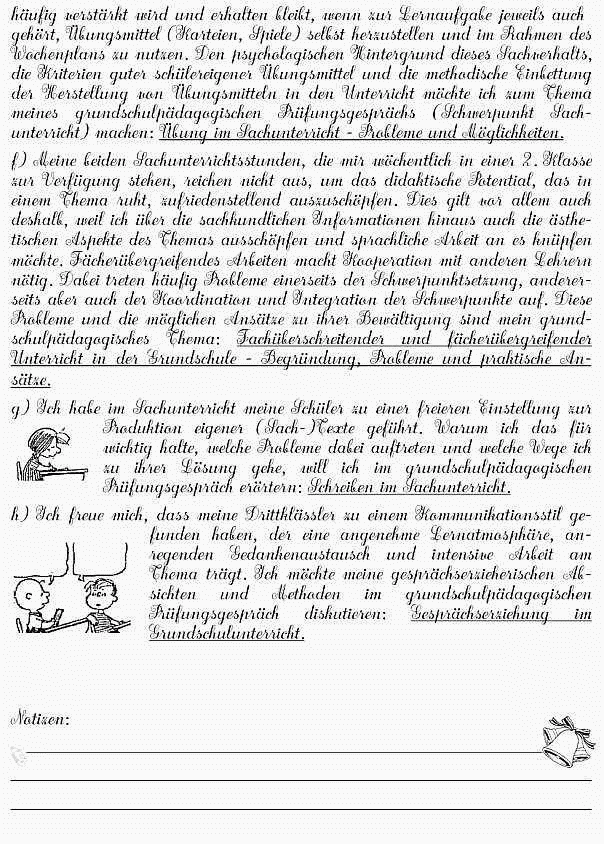 häufig verstärkt wird und erhalten bleibt, wenn zur Lernaufgabe jeweils auch
gehört, Übungsmittel (Karteien, Spiele) selbst herzustellen und im Rahmen des
Wochenplans zu nutzen. Den psychologischen Hintergrund dieses Sachverhalts,
die Kriterien guter schülereigener Übungsmittel und die methodische Einbettung
der Herstellung von Übungsmitteln in den Unterricht möchte ich zum Thema
meines grundschulpädagogischen Prüfungsgesprächs (Schwerpunkt Sach-
unterricht) machen: Übung im Sachunterricht - Probleme und Möglichkeiten.
f) Meine beiden Sachunterrichtsstunden, die mir wöchentlich in einer 2. Klasse
zur Verfügung stehen, reichen nicht aus, um das didaktische Potential, das in
einem Thema ruht, zufriedenstellend auszuschöpfen. Dies gilt vor allem auch
deshalb, weil ich über die sachkundlichen Informationen hinaus auch die ästhe-
tischen Aspekte des Themas ausschöpfen und sprachliche Arbeit an es knüpfen
möchte. Fächerübergreifendes Arbeiten macht Kooperation mit anderen Lehrern
nötig. Dabei treten häufig Probleme einerseits der Schwerpunktsetzung, anderer-
seits aber auch der Koordination und Integration der Schwerpunkte auf. Diese
Probleme und die möglichen Ansätze zu ihrer Bewältigung sind mein grund-
schulpädagogisches Thema: Fachüberschreitender und fächerübergreifender
Unterricht in der Grundschule - Begründung, Probleme und praktische An-
sätze.
g) Ich habe im Sachunterricht meine Schüler zu einer freieren Einstellung zur
Produktion eigener (Sach-)Texte geführt. Warum ich das für
wichtig halte, welche Probleme dabei auftreten und welche Wege ich
zu ihrer Lösung gehe, will ich im grundschulpädagogischen
Prüfungsgespräch erörtern: Schreiben im Sachunterricht.
h) Ich freue mich, dass meine Drittklässler zu einem Kommunikationsstil ge-
funden haben, der eine angenehme Lernatmosphäre, an-
regenden Gedankenaustausch und intensive Arbeit am
Thema trägt. Ich möchte meine gesprächserzieherischen Ab-
sichten und Methoden im grundschulpädagogischen
Prüfungsgespräch diskutieren: Gesprächserziehung im
Grundschulunterricht.
Notizen: